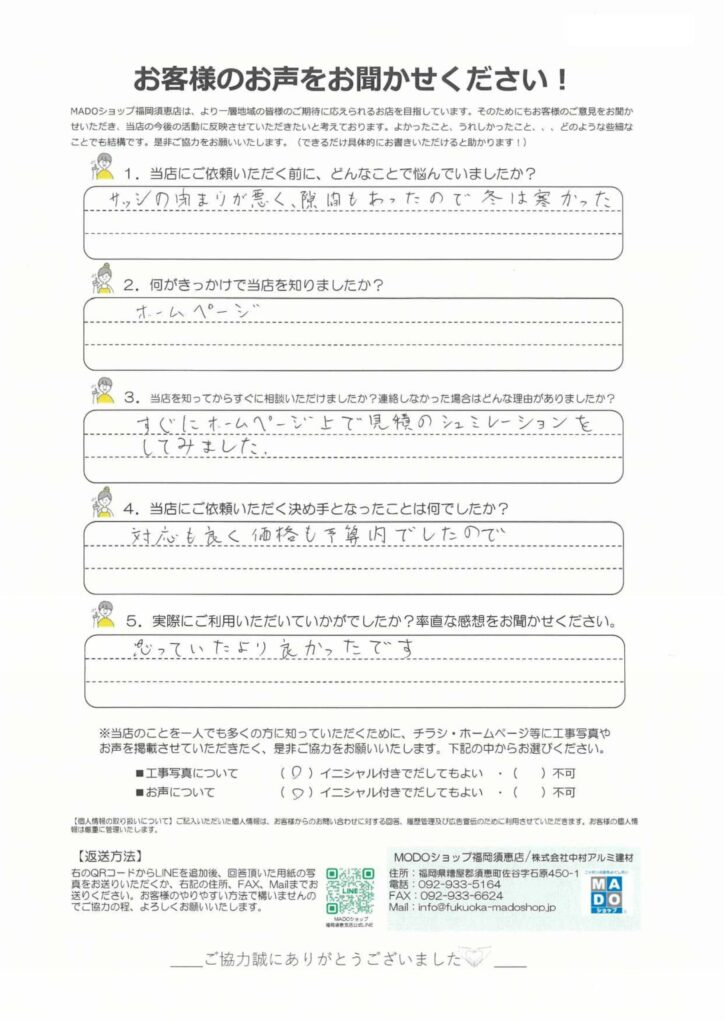 お客様のお声をお聞かせください！
MADOショップ福岡須恵店は、より一層地域の皆様のご期待に応えられるお店を目指しています。そのためにもお客様のご意見をお聞か
せいただき、当店の今後の活動に反映させていただきたいと考えております。よかったこと、うれしかったこと、、、どのような些細な
ことでも結構です。是非ご協力をお願いいたします。（できるだけ具体的にお書きいただけると助かります！）
1．当店にご依頼いただく前に、どんなことで悩んでいましたか？
サッシの閉まりが悪く、隙間もあったので冬は寒かった
2．何がきっかけで当店を知りましたか？
ホームページ
3．当店を知ってからすぐに相談いただけましたか？連絡しなかった場合はどんな理由がありましたか？
すぐにホームページ上で見積のシュミレーションを
してみました.
4．当店にご依頼いただく決め手となったことは何でしたか？
対応も良く価格も予算内でしたので
5．実際にご利用いただいていかがでしたか？率直な感想をお聞かせください。
思っていたより良かったです
※当店のことを一人でも多くの方に知っていただくために、チラシ・ホームページ等に工事写真や
お声を掲載させていただきたく、是非ご協力をお願いいたします。下記の中からお選びください。
■工事写真について （○）イニシャル付きでだしてもよい ・（ ）不可
■お声について （○）イニシャル付きでだしてもよい ・（ ）不可
【個人情報の取り扱いについて】ご記入いただいた個人情報は、お客様からのお問い合わせに対する回答、履歴管理及び広告宣伝のために利用させていただきます。お客様の個人情
報は厳重に管理いたします。
【返送方法】
右のQRコードからLINEを追加後、回答頂いた用紙の写
真をお送りいただくか、右記の住所、FAX、Mailまでお
送りください。お客様のやりやすい方法で構いませんの
でご協力の程、よろしくお願いいたします。
MADOショップ
福岡須恵店公式LINE
MODOショップ福岡須恵店/株式会社中村アルミ建材
住所：福岡県糟屋郡須恵町佐谷字石原450-1
電話：092-933-5164
FAX：092-933-6624
Mail：info@fukuoka-madoshop.jp
MA
DO
ショップ
ご協力誠にありがとうございました